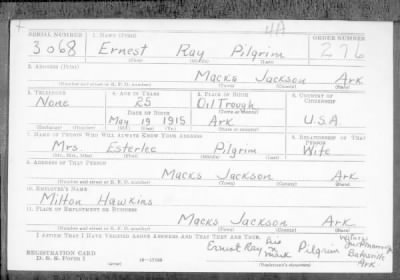 4A
SERIAL NUMBER 1. NAME (Print) ORDER NUMBER
3068 Ernest Ray Pilgrim 276
(First) (Middle) (Last)
2. ADDRESS (Print)
Macks Jackson Ark
(Number and street or R. F. D. number) (Town) (County) (State)
3. TELEPHONE 4. AGE IN YEARS 5. PLACE OF BIRTH 6. COUNTRY OF CITIZENSHIP
None 25 Oil Trough
DATE OF BIRTH (Town or county)
May 19 1915 Ark U.S.A
(Exchange) (Number) (Mo.) (Day) (Yr.) (State or country)
7. NAME OF PERSON WHO WILL ALWAYS KNOW YOUR ADDRESS 8. RELATIONSHIP OF THAT PERSON
Mrs. Esterlee Pilgrim Wife
(Mr., Mrs., Miss) (First) (Middle) (Last)
9. ADDRESS OF THAT PERSON
Macks Jackson Ark
(Number and street or R. F. D. number) (Town) (County) (State)
10. EMPLOYER'S NAME
Milton Hawkins
11. PLACE OF EMPLOYMENT OR BUSINESS
Macks Jackson Ark
(Number and street or R. F. D. number) (Town) (County) (State)
I AFFIRM THAT I HAVE VERIFIED ABOVE ANSWERS AND THAT THEY ARE TRUE.
Ernest Ray his x mark Pilgrim
Batesville
Ark
REGISTRATION CARD
D. S. S. FORM 1 16-17105